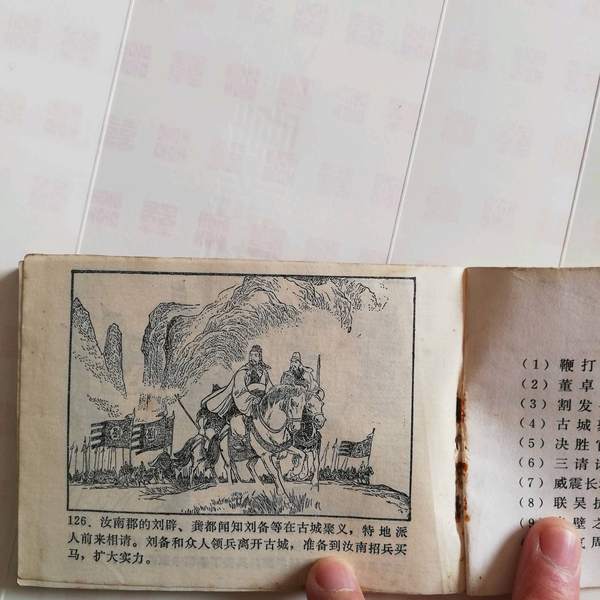 126. 汝南郡的刘辟、龚都闻知刘备等在古城聚义，特地派
人前来相请。刘备和众人领兵离开古城，准备到汝南招兵买
马，扩大实力。
（1）鞭打
（2）董卓
（3）割发
（4）古城
（5）决胜
（6）三请
（7）威震长
（8）联吴抗
（9 壁之
气周